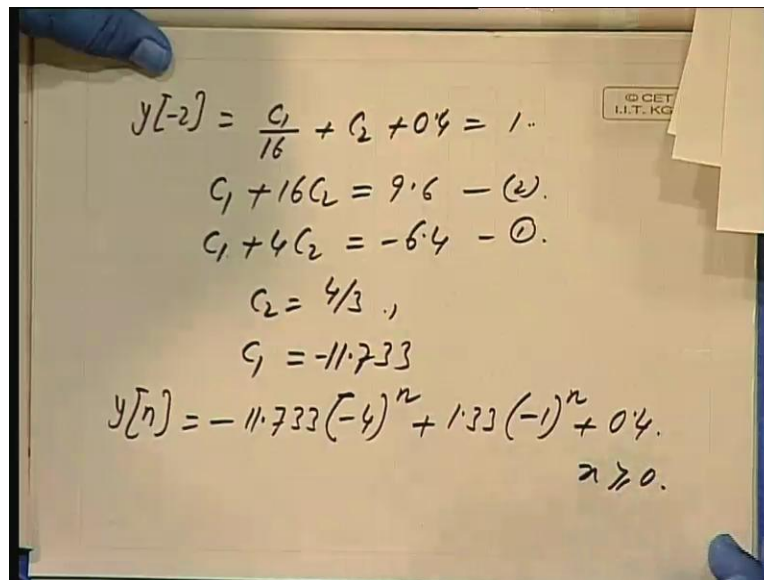 © CET
I.I.T. KG
y[-2] = C₁/16 + C₂ + 0.4 = 1..
C₁ + 16C₂ = 9.6 — (2).
C₁ + 4C₂ = -6.4 - ①.
C₂ = 4/3 .,
C₁ = -11.733
y[n] = -11.733(-4)ⁿ + 1.33(-1)ⁿ + 0.4.
n ≥ 0.